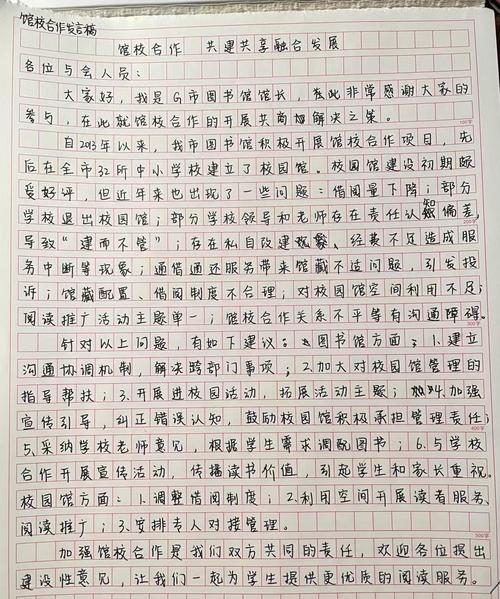 馆校合作发言稿
馆校合作 共建共享融合发展
各位与会人员：
大家好，我是G市图书馆馆长，在此非常感谢大家的
参与，在此就馆校合作的开展共商解决之策。
100字
自2013年以来，我市图书馆积极开展馆校合作项目，先
后在全市32所中小学校建立了校园馆。校园馆建设初期颇
受好评，但近年来也出现了一些问题：借阅量下降；部分
学校退出校园馆；部分学校领导和老师存在责任认知偏差，
200字
导致“建而不管”；存在私自改建现象、经费不足造成服
务中断等现象；通借通还服务带来馆藏不适问题，引发投
诉；馆藏配置、借阅制度不合理；对校园馆空间利用不足；
阅读推广活动主题单一；馆校合作关系不平等有沟通障碍。
300字
针对以上问题，有如下建议：图书馆方面：1.建立
沟通协调机制，解决跨部门事项；2.加大对校园馆管理的
指导帮扶；3.开展进校园活动，拓展活动主题；4.加强
宣传引导，纠正错误认知，鼓励校园馆积极承担管理责任；
400字
5.采纳学校老师意见，根据学生需求调配图书；6.与学校
合作开展宣传活动，传播读书价值，引起学生和家长重视。
校园馆方面：1.调整借阅制度；2.利用空间开展读者服务、
阅读推广；3.安排专人对接管理。
500字
加强馆校合作是我们双方共同的责任，欢迎各位提出
建设性意见，让我们一起为学生提供更优质的阅读服务。